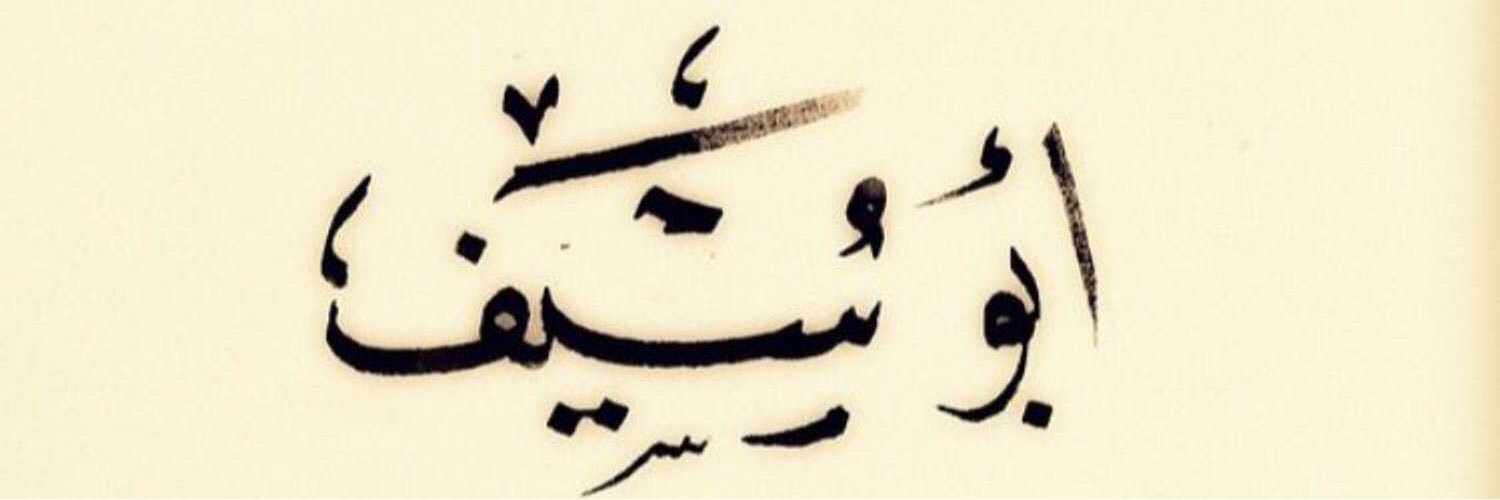 أبو سيف